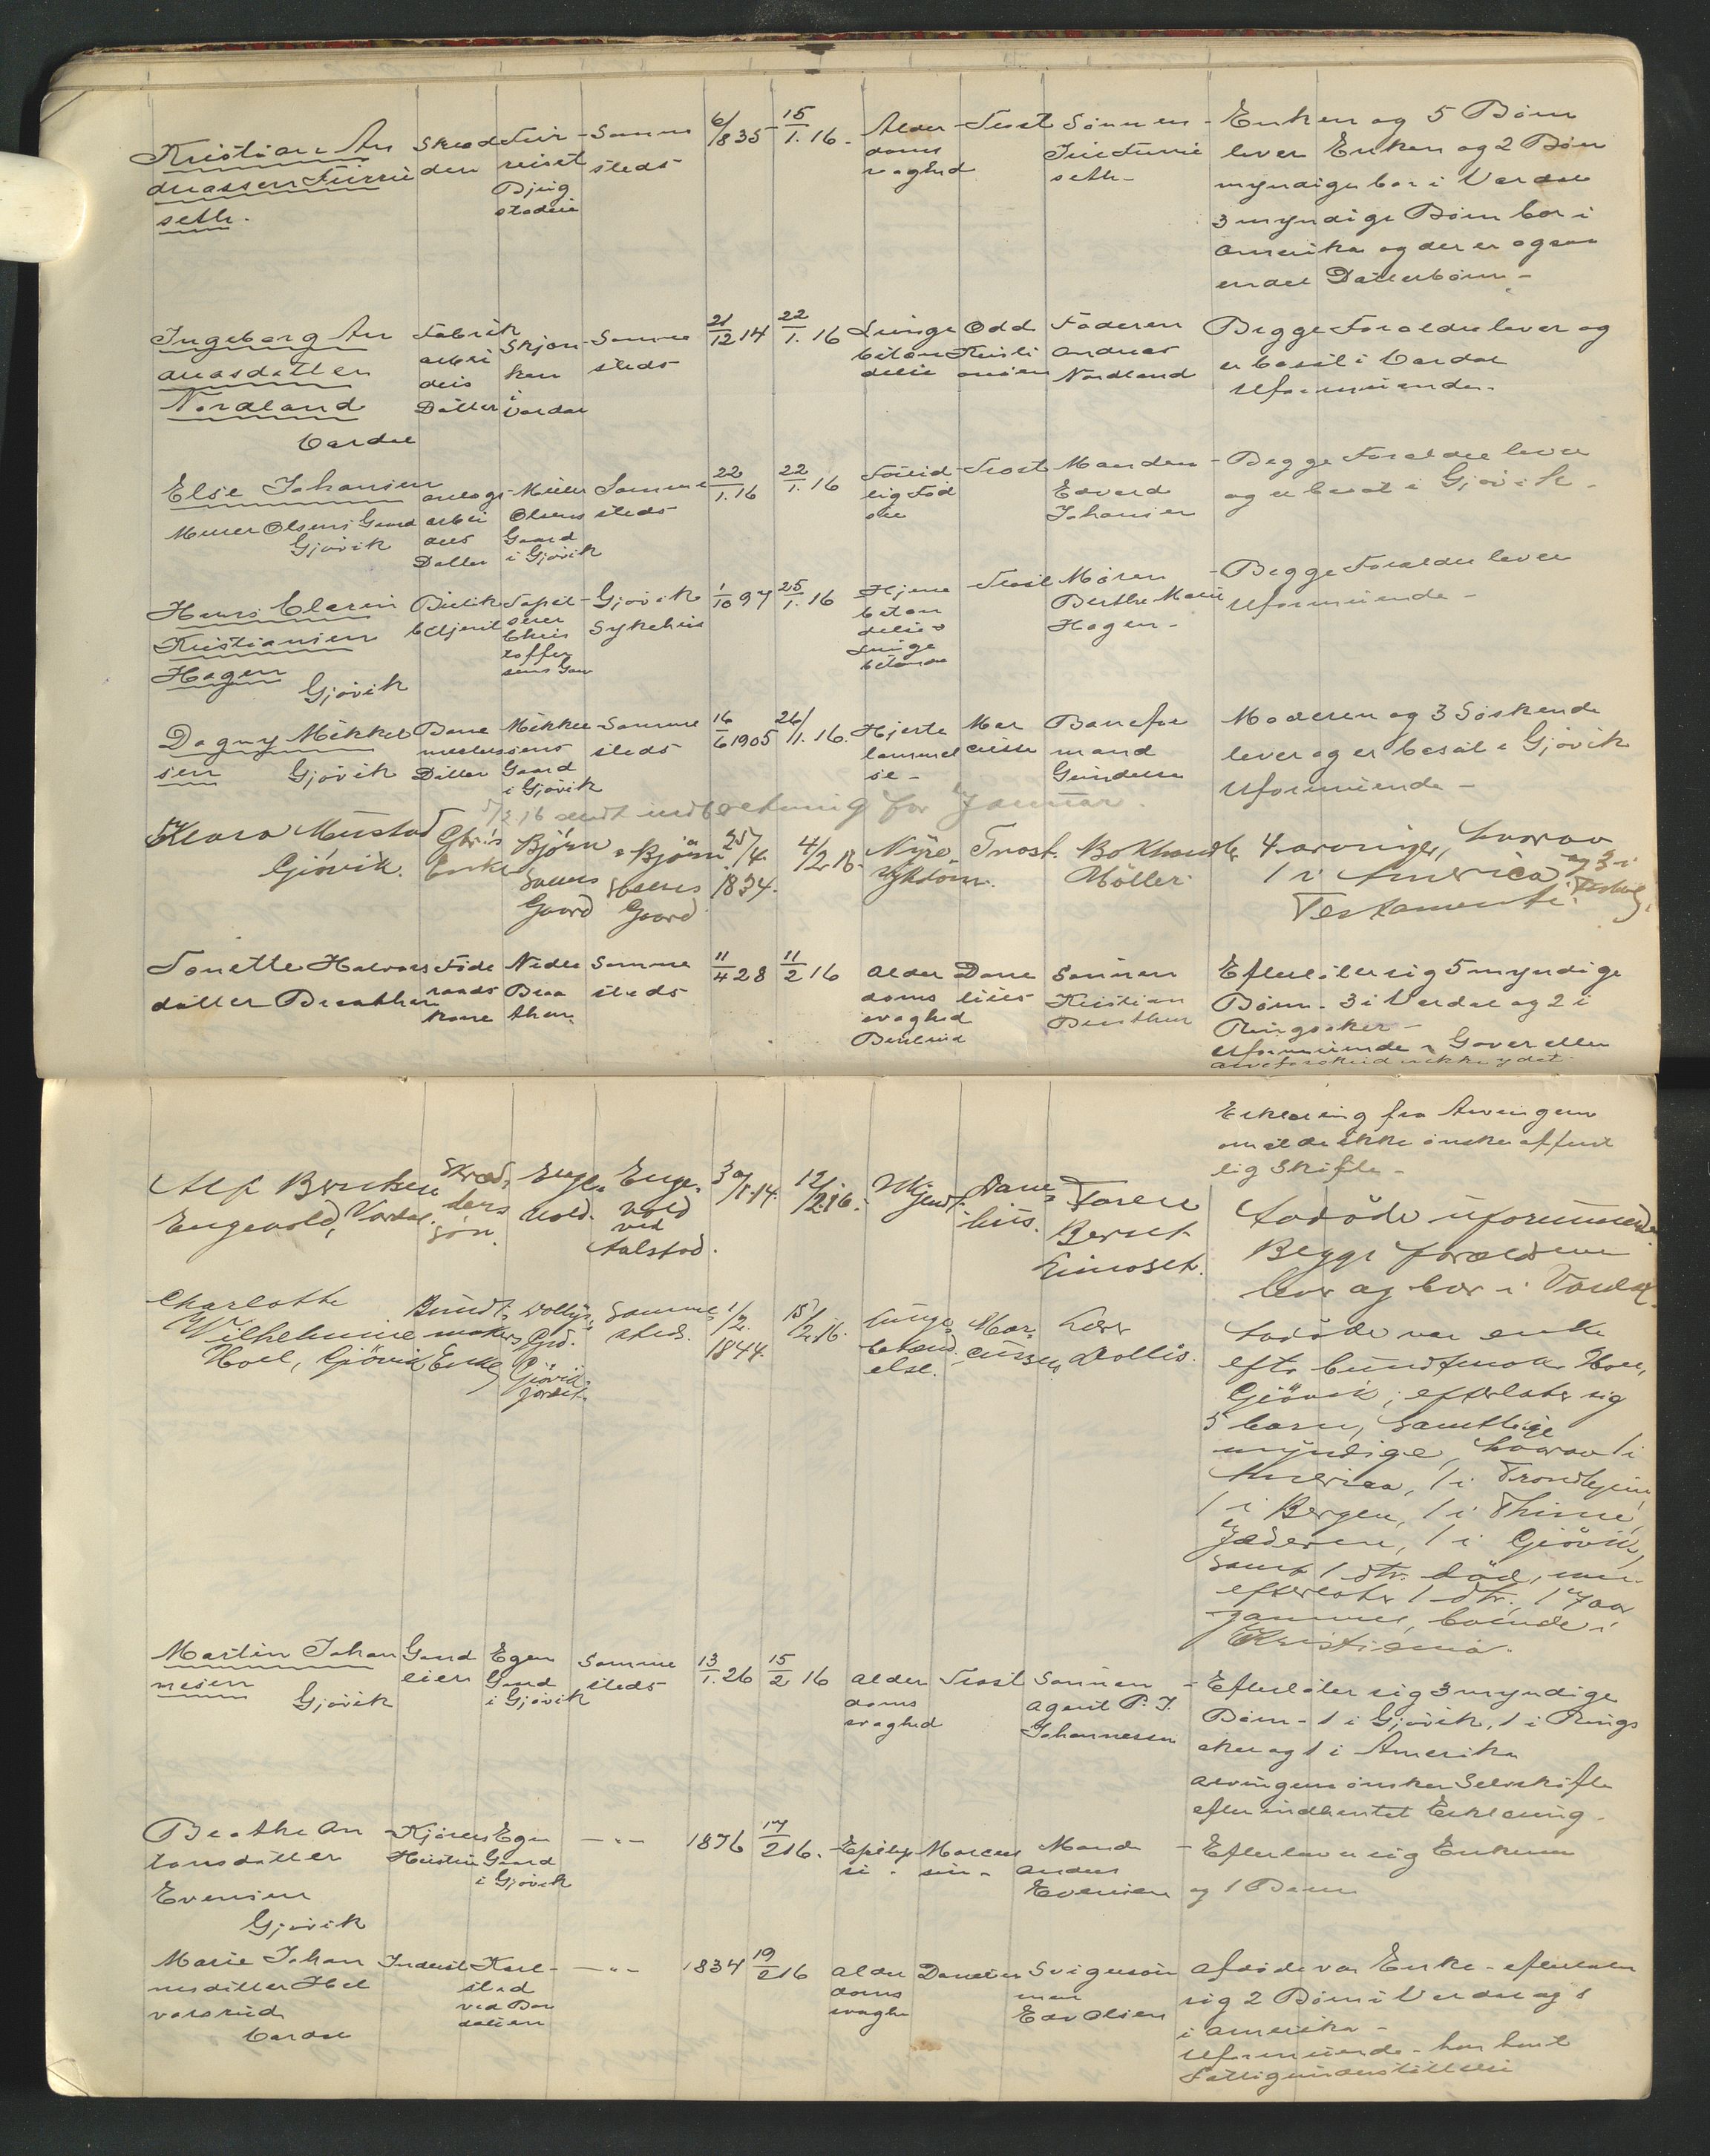 Kristian An
dreassen Furru
seth.
Skred
der
reiset
Bjug
stadeie
Samme
steds
6/8 35
15/1. 16.
Alder
doms
svaghed
Trost
Sönnen
seth.
Enken og 5 Börn
lever Enken og 2 Börn
myndige bor i Vardal
3 myndige Börn bor i
Amerika og der er ogsaa
endel Datterbörn -
Ingeborg An
dreasdatter
Nordland
Vardal
Fabrik
arbei
ders
Datter
Skjon
ken
i
Vardal
Samme
steds
21/12 14
22/1. 16
Lunge
betæn
delse
Odd
Kristi
ansen
Faderen
Andreas
Nordland
Begge Foraldre lever og
er bosat i Vardal
Uformuende.
Else Johansen
Gaard
Gjøvik
anlægs
arbei
ders
Datter
Olsens
Gaard
i Gjøvik
Samme
steds
22/1. 16
22/1. 16
Trost
Manden
Edvard
Johansen
Begge Foraldre lever
og er bosat i Gjøvik.
Hans Clarin
Kristiansen
Hagen
Gjøvik
Butik
betjent
Tapet
serer
Chris
toffer
sens Gaar
Gjøvik
Sykehus
1/10 97
25/1. 16
Hjerne
betæn
delse
Lunge
betænde
Trost
Moren
Berthe Marie
Hagen -
Begge Foraldre lever
Uformuende -
Dagny Mikkel
sen
Gjøvik
Bane
mesters
Datter
Mikkel
sens
Gaard
i Gjøvik
Samme
steds
16/6 1905
26/1. 16.
Hjerte
lammel
se -
Mar
cusse
Banefor
mand
Gundersen
Moderen og 3 Söskende
lever og er bosat i Gjøvik
Uformuende -
5/2 16 sendt indberetning for Januar.
Klara Mustad
Gjövik.
Enke
Björn
Gaard
Björn
Gaard
25/4.
1834.
4/2.16.
Nyre-
sykdom.
Trost.
Bokhandler
Möller.
4 arvinger, hvorav
1 i America og 3 i
Testamente.
Tonette Halvors
datter Braathen
Föde
raads
kone
Nedre
Braa
then
Samme
steds
11/4 28
11/2 16
Alder
doms
svaghed
Dane
lius
Sönnen
Kristian
Braathen
Efterlater sig 5 myndige
Börn - 3 i Vardal og 2 i
Ringsaker -
Uformuende - Gaver eller
arveforskud er ikke ydet.
Erklæring fra Arvingerne
om at de ikke önsker offent
lig Skifte -
Alf Berntsen
Engevold, Vardal.
Skræd-
ders
sön.
Enge-
vold.
Enge-
vold
ved
Aalstad.
12/2.16.
Dane-
lius.
Faren
Bernt
Avdöde uformuende
Begge forældrene
lever og bor i Vardal.
Charlotte
Wilhelmine
Hoel, Gjövik
Bundt-
makers
Enke
Dollis
Grd.
Gjövik
jordet.
Samme
steds.
1/2.
1844.
15/2.16.
Lunge-
betænd-
else.
Mar-
cussen
Lærer
Dollis.
Avdöde var enke
efter bundtmaker Hoel,
Gjövik; efterlater sig
5 barn, samtlige
myndige, hvorav 1 i
America, 1 i Trondhjem,
1 i Bergen, 1 i Thime,
Jæderen, 1 i Gjövik,
samt 1 dtr. död, men
efterlater 1 dtr. 17 aar
gammel, boende i
Kristiania.
Martin Johan
nesen
Gjøvik
Gaard
eier
Egen
Gaard
i Gjøvik
Samme
steds
13/1. 26
15/2 16
Alder
doms
svaghed
Trost
Sönnen
Agent P. J.
Johannessen
Efterlater sig 3 myndige
Börn - 1 i Gjøvik, 1 i Rings
aker og 1 i Amerika
Arvingerne önsker Selvskifte
efter indhentet Erklæring.
Beathe An
tonsdatter
Evensen
Gjøvik
Kjörers
Hustru
Egen
Gaard
i Gjøvik
- " -
1876
17/2 16.
Epilep
si -
Marcus
sen -
Mand
Anders
Evensen
Efterlater sig Enkeman
og 1 Barn
Marie Johan
nesdatter Hal
vorsrud
Vardal
Inderst
Karl
stad
ved Bar
dalien
- " -
1834
19/2 16
Alder
doms
svaghe
Danelius
Svigersön
nen
Edv Olsen
Afdöde var Enke - efterlater
sig 2 Börn i Vardal og 1
i Amerika -
Uformuende - har havt
Fattigunderstöttelse